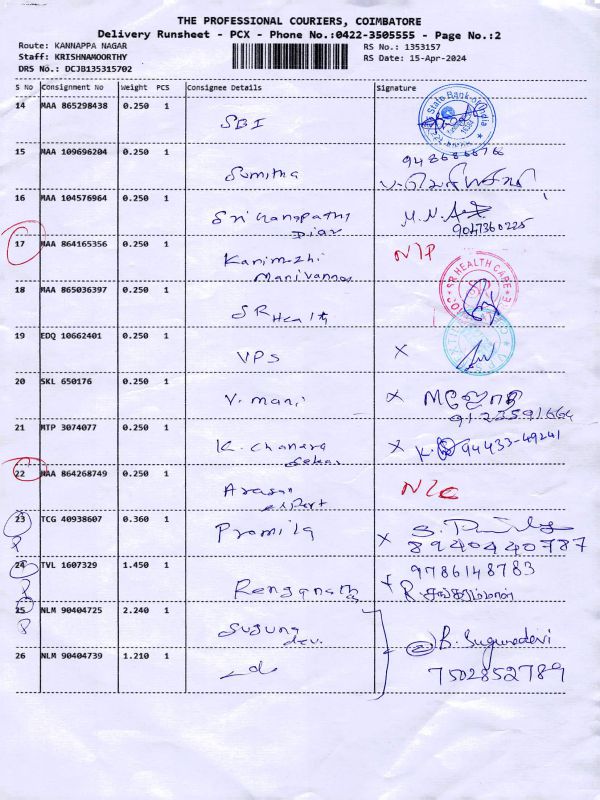 THE PROFESSIONAL COURIERS, COIMBATORE
Delivery Runsheet - PCX - Phone No.:0422-3505555 - Page No.:2
Route: KANNAPPA NAGAR
RS No.: 1353157
Staff: KRISHNAMOORTHY
RS Date: 15-Apr-2024
DRS No.: DCJB135315702
S No Consignment No Weight PCS Consignee Details Signature
14 MAA 865298438 0.250 1
SBI
State Bank of India
15 MAA 109696204 0.250 1
Sumitha
16 MAA 104576964 0.250 1
Sri Ganapathi
M.N.
9047360225
17 MAA 864165356 0.250 1
Kanimozhi
Manivannan
N/P
18 MAA 865036397 0.250 1
SR Health
SR HEALTH CARE
19 EDQ 10662401 0.250 1
VPS X
20 SKL 650176 0.250 1
V. mani X
21 MTP 3074077 0.250 1
K. Chandra
Sekar
X K. 94433-49241
22 MAA 864268749 0.250 1
Arasan
Export
N/C
23 TCG 40938607 0.360 1
Promila X
8940440787
24 TVL 1607329 1.450 1
9786148783
Renganath X
25 NLM 90404725 2.240 1
Suguna
devi
B. Sugunadevi
26 NLM 90404739 1.210 1
7502852789